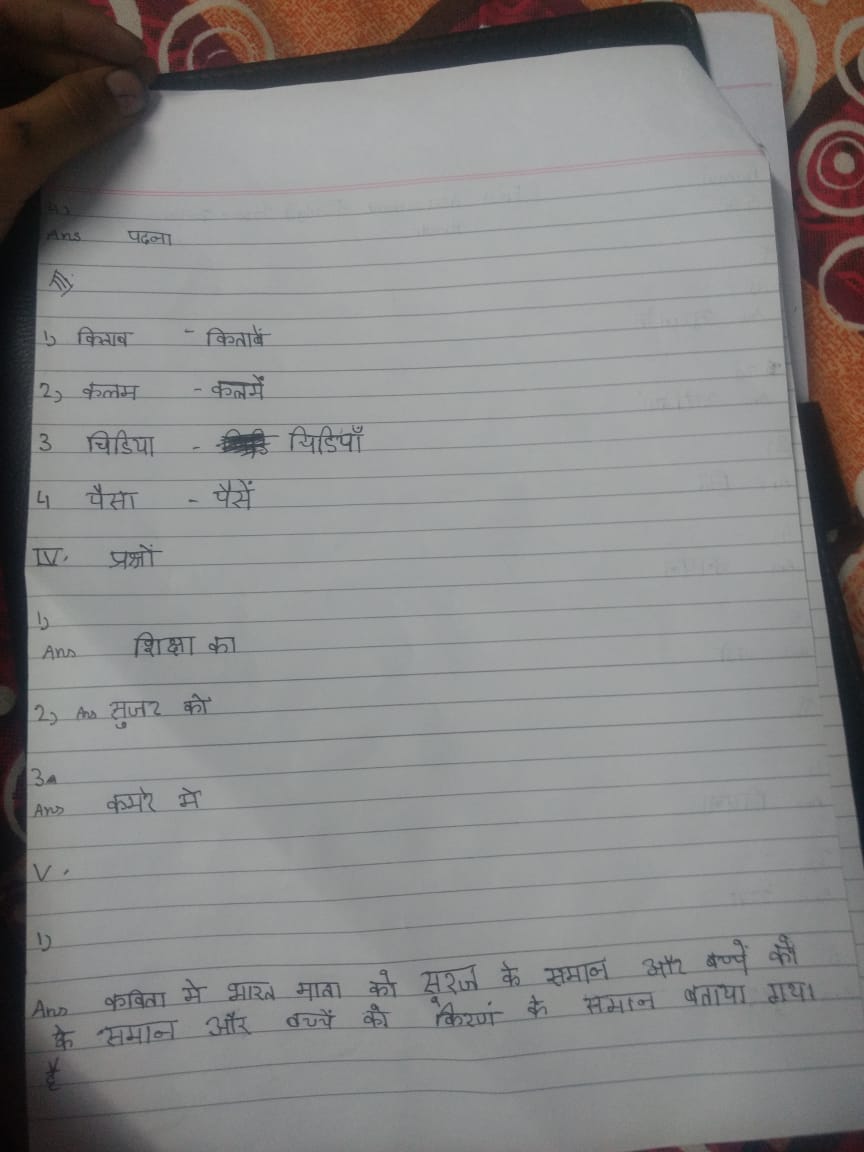 4)
Ans पढना
III)
1) किताब - किताबें
2) कलम - कलमें
3 चिडिया - चिडियाँ
4 पैसा - पैसें
IV. प्रश्नों
1)
Ans शिक्षा का
2) Ans सुजर को
3)
Ans कमरे मे
V.
1)
Ans कविता मे भारत माता को सुरज के समान और बच्चें को
के समान और बच्चें को किरणं के समान बताया गया
है